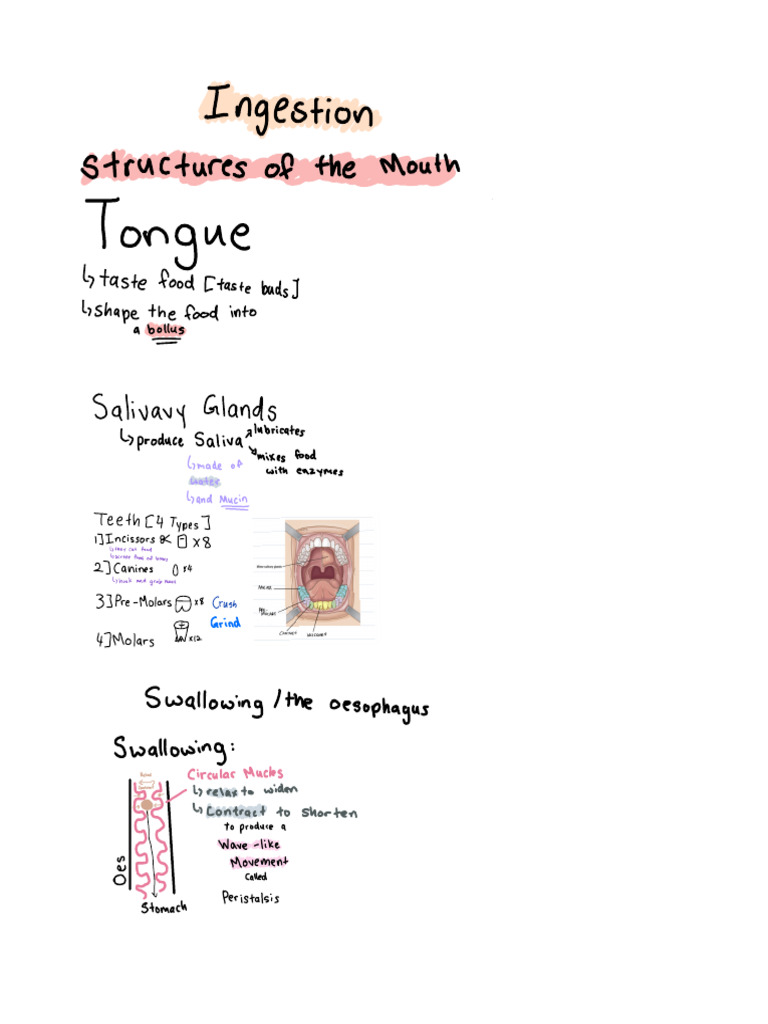 Ingestion
Structures of the Mouth
Tongue
↳ taste food [taste buds]
↳ shape the food into
a bollus
Salivavy Glands
↳ produce Saliva
lubricates
mixes food
with enzymes
↳ made of
water
↳ and Mucin
Teeth [4 Types]
1] Incissors x 8
2] Canines x4
3] Pre-Molars x8 Crush
Grind
4] Molars x12
Molars
Pre-
Molars
Canines
Incissors
Swallowing / the oesophagus
Swallowing:
Circular Mucles
↳ relax to widen
↳ Contract to shorten
to produce a
Wave-like
Movement
called
Peristalsis
Oes
Stomach